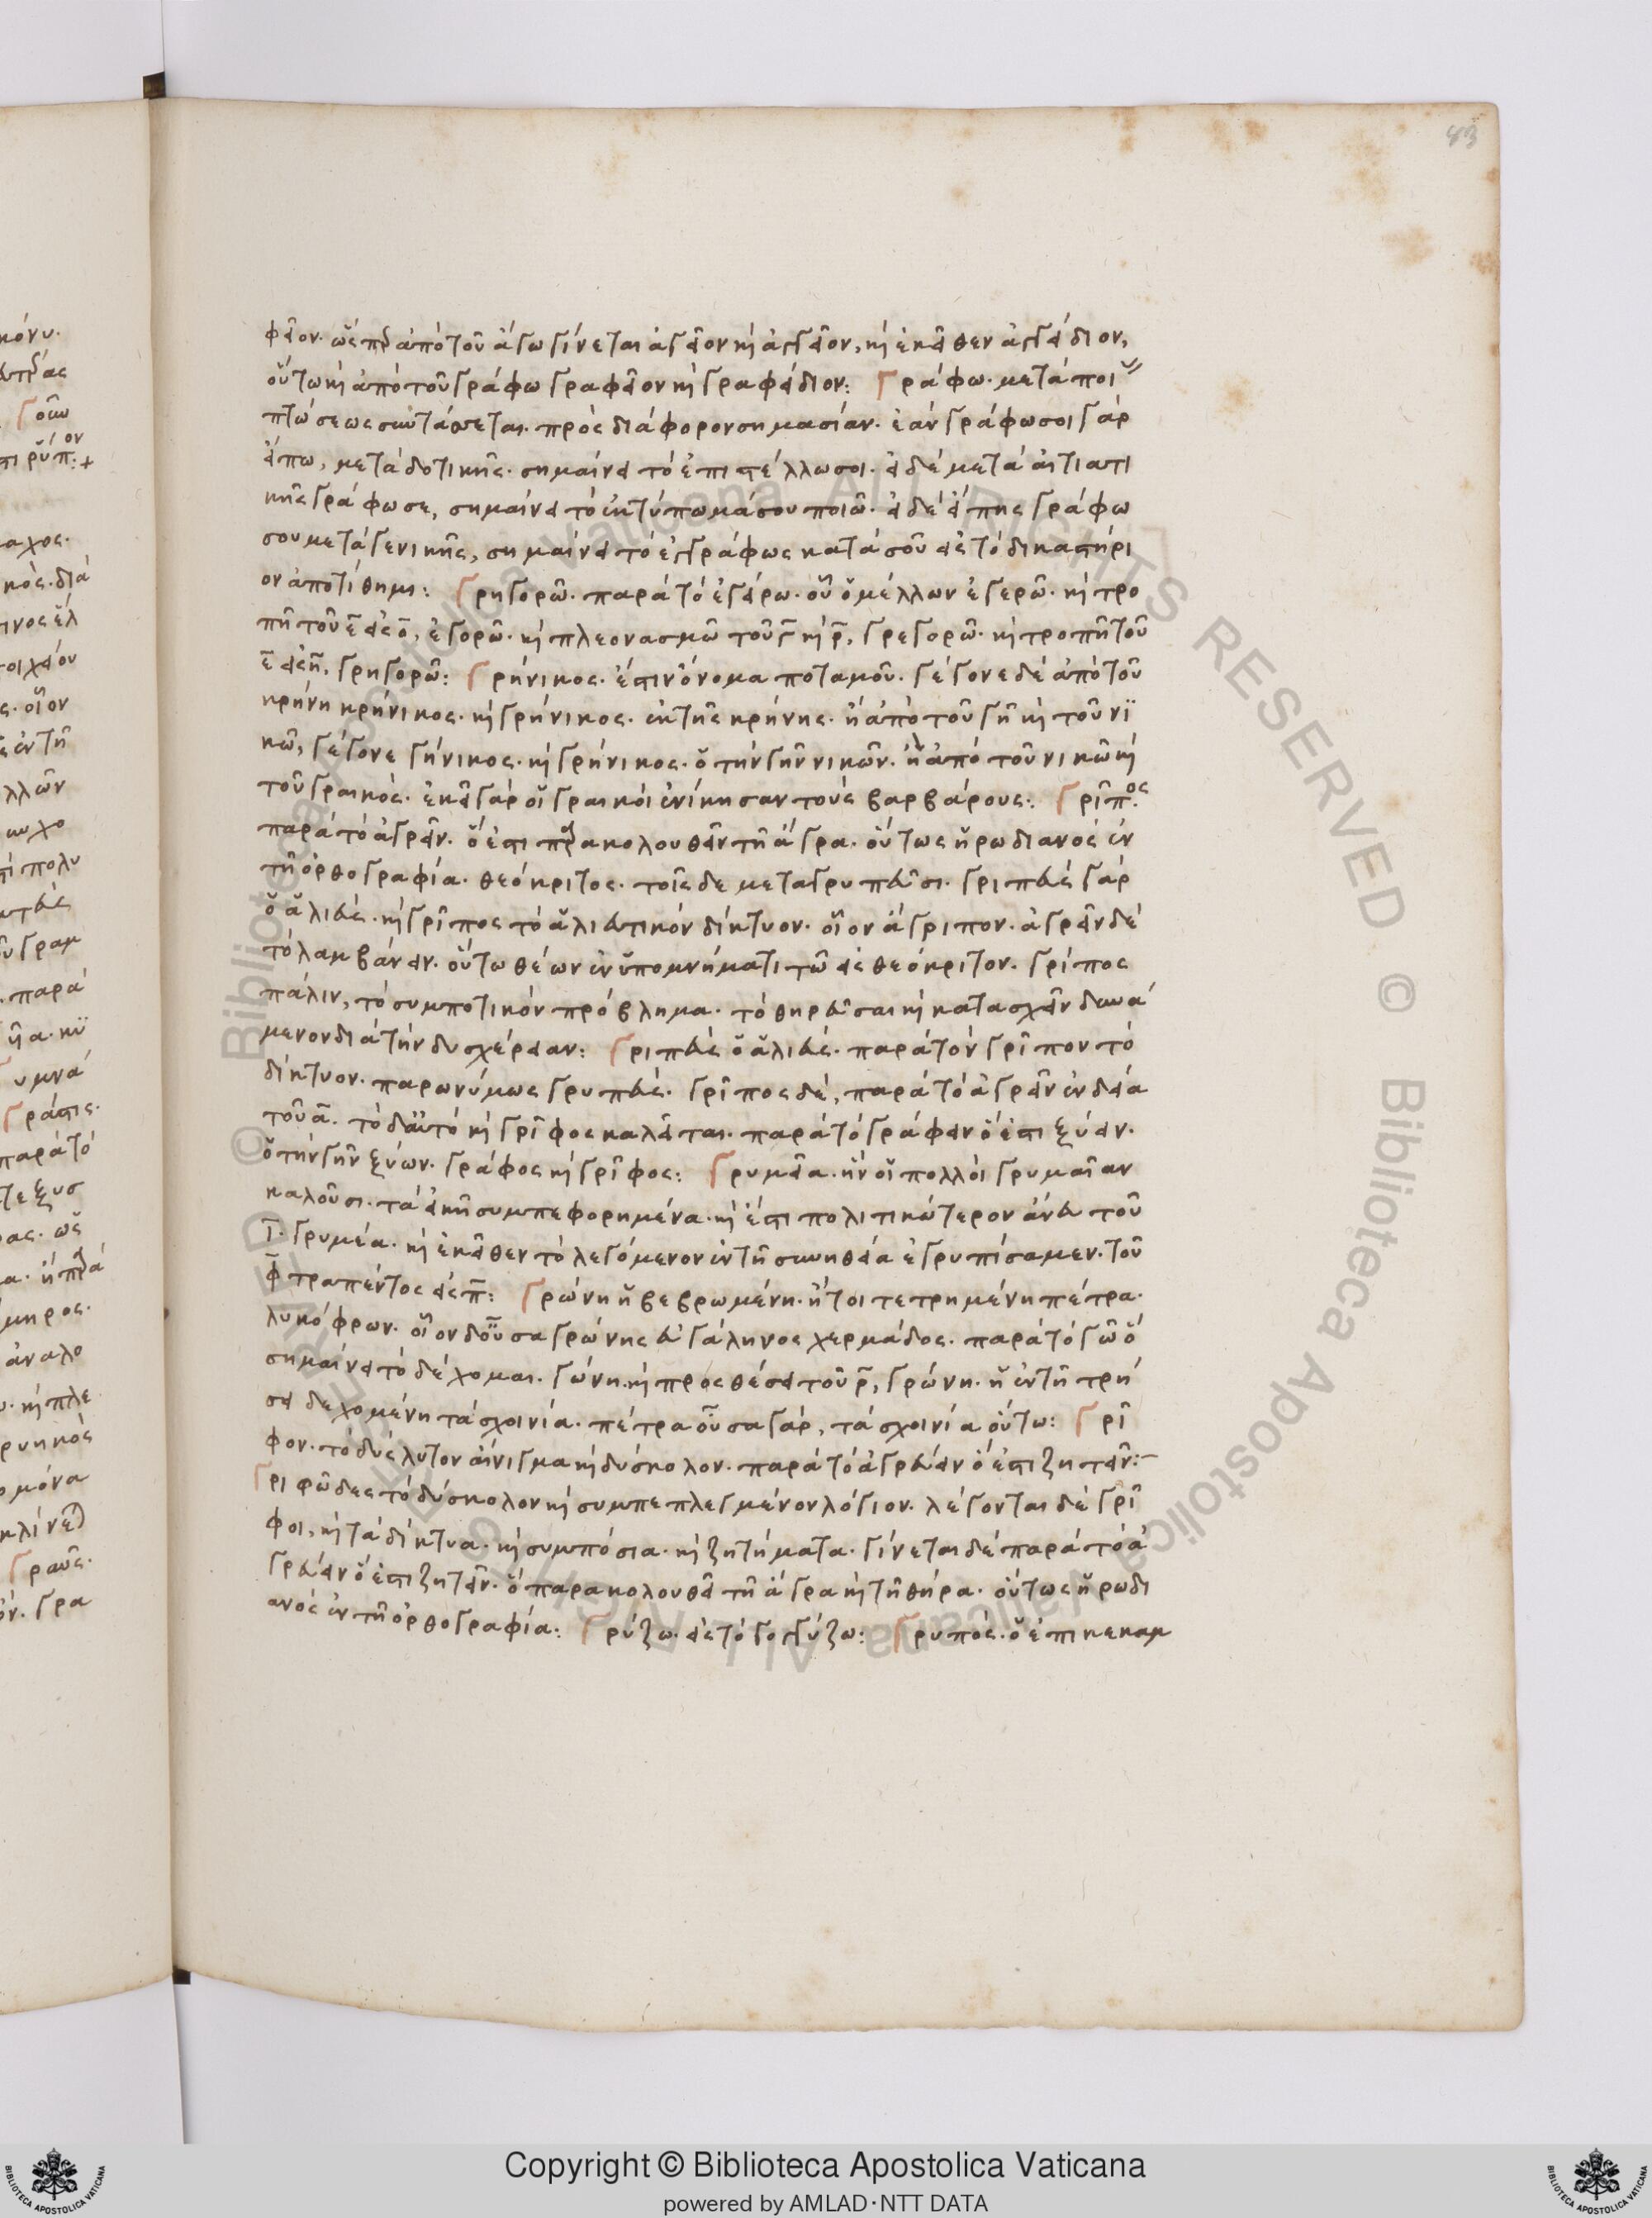 φεῖον. ὥσπερ ἀπὸ τοῦ ἄγω γίνεται ἀγεῖον καὶ ἀγγεῖον, καὶ ἐκεῖθεν ἀγγείδιον,
οὕτω καὶ ἀπὸ τοῦ γράφω γραφεῖον καὶ γραφείδιον: Γράφω. μετὰ ποί
πτώσεως συντάσσεται. πρὸς διάφορον σημασίαν. ἐὰν γράφω σοι γὰρ
εἴπω, μετὰ δοτικῆς. σημαίνει τὸ ἐπιστέλλω σοι. εἰ δὲ μετὰ αἰτιατι
κῆς γράφω σε, σημαίνει τὸ ἐκτύπωμά σου ποιῶ. εἰ δὲ εἴπῃς γράφω
σου μετὰ γενικῆς, σημαίνει τὸ ἐγγράφως κατὰ σοῦ εἰς τὸ δικαστήρι
ον ἀποτίθημι: Γρηγορῶ. παρὰ τὸ ἐγείρω. οὗ ὁ μέλλων ἐγερῶ. καὶ τρο
πῇ τοῦ ε̄ εἰς ο̄, ἐγορῶ. καὶ πλεονασμῶ τοῦ γ̄ καὶ ρ̄, γρεγορῶ. καὶ τροπῇ τοῦ
ε̄ εἰς η̄, γρηγορῶ: Γρήνικος. ἔστιν ὄνομα ποταμοῦ. γέγονε δὲ ἀπὸ τοῦ
κρήνη κρήνικος. καὶ γρήνικος. ἐκ τῆς κρήνης. ἢ ἀπὸ τοῦ γῆ καὶ τοῦ νι
κῶ, γέγονε γήνικος. καὶ γρήνικος. ὁ τὴν γῆν νικῶν. ἢ ἀπὸ τοῦ νικῶ καὶ
τοῦ γραικός. ἐκεῖ γὰρ οἱ γραικοὶ ἐνίκησαν τοὺς βαρβάρους: Γρῖπος.
παρὰ τὸ ἀγρεῖν. ὅ ἐστι παρακολουθεῖν τῇ ἄγρα. οὕτως ἡρωδιανὸς ἐν
τῇ ὀρθογραφία. θεόκριτος. τοῖς δε μεταγρυπεῦσι. γριπεὺς γὰρ
ὁ ἁλιεύς. καὶ γρῖπος τὸ ἁλιευτικὸν δίκτυον. οἷον ἄγριπον. ἀγρεῖν δὲ
τὸ λαμβάνειν. οὕτω θέων ἐν ὑπομνήματι τῶ εἰς θεόκριτον. γρίπος
πάλιν, τὸ συμποτικὸν πρόβλημα. τὸ θηρεῦσαι καὶ κατασχεῖν δυνά
μενον διὰ τὴν δυσχέρειαν: Γριπεὺς ὁ ἁλιεύς. παρὰ τὸν γρῖπον τὸ
δίκτυον. παρωνύμως γρυπεύς. γρῖπος δὲ, παρὰ τὸ ἀγρεῖν ἐνδεία
τοῦ ᾱ. τὸ δ' αὐτὸ καὶ γρῖφος καλεῖται. παρὰ τὸ γράφειν ὅ ἐστι ξύειν.
ὁ τὴν γῆν ξύων. γράφος καὶ γρῖφος: Γρυμεῖα. ἣν οἱ πολλοὶ γρυμαῖαν
καλοῦσι. τὰ εἰκῆ συμπεφορημένα. καὶ ἔστι πολιτικώτερον ἄνευ τοῦ
ῑ. γρυμέα. καὶ ἐκεῖθεν τὸ λεγόμενον ἐν τῇ συνηθεία ἐγρυπίσαμεν. τοῦ
φ̄ τραπέντος εἰς π̄: Γρώνη ἡ βεβρωμένη. ἤτοι τετρημένη πέτρα.
λυκόφρων. οἷον δοῦσα γρώνης εὐγάληνος χερμάδος. παρὰ τὸ γῶ ὃ
σημαίνει τὸ δέχομαι. γώνη. καὶ προσθέσει τοῦ ρ̄, γρώνη. ἡ ἐν τῇ τρή
σει δεχομένη τὰ σχοινία. πέτρα οὖσα γὰρ, τὰ σχοινία οὕτω: Γρῖ
φον. τὸ δύσλυτον αἴνιγμα καὶ δύσκολον. παρὰ τὸ ἀγρεύειν ὅ ἐστι ζητεῖν:
Γριφῶδες τὸ δύσκολον καὶ συμπεπλεγμένον λόγιον. λέγονται δὲ γρῖ
φοι, καὶ τὰ δίκτυα. καὶ συμπόσια. καὶ ζητήματα. γίνεται δὲ παρὰ τὸ ἀ
γρεύειν ὅ ἐστι ζητεῖν. ὃ παρακολουθεῖ τῇ ἄγρα καὶ τῇ θήρα. οὕτως ἡρωδι
ανὸς ἐν τῇ ὀρθογραφία: Γρύζω. εἰς τὸ γογγύζω: Γρυπός. ὁ ἐπικεκαμ
Copyright © Biblioteca Apostolica Vaticana
powered by AMLAD·NTT DATA